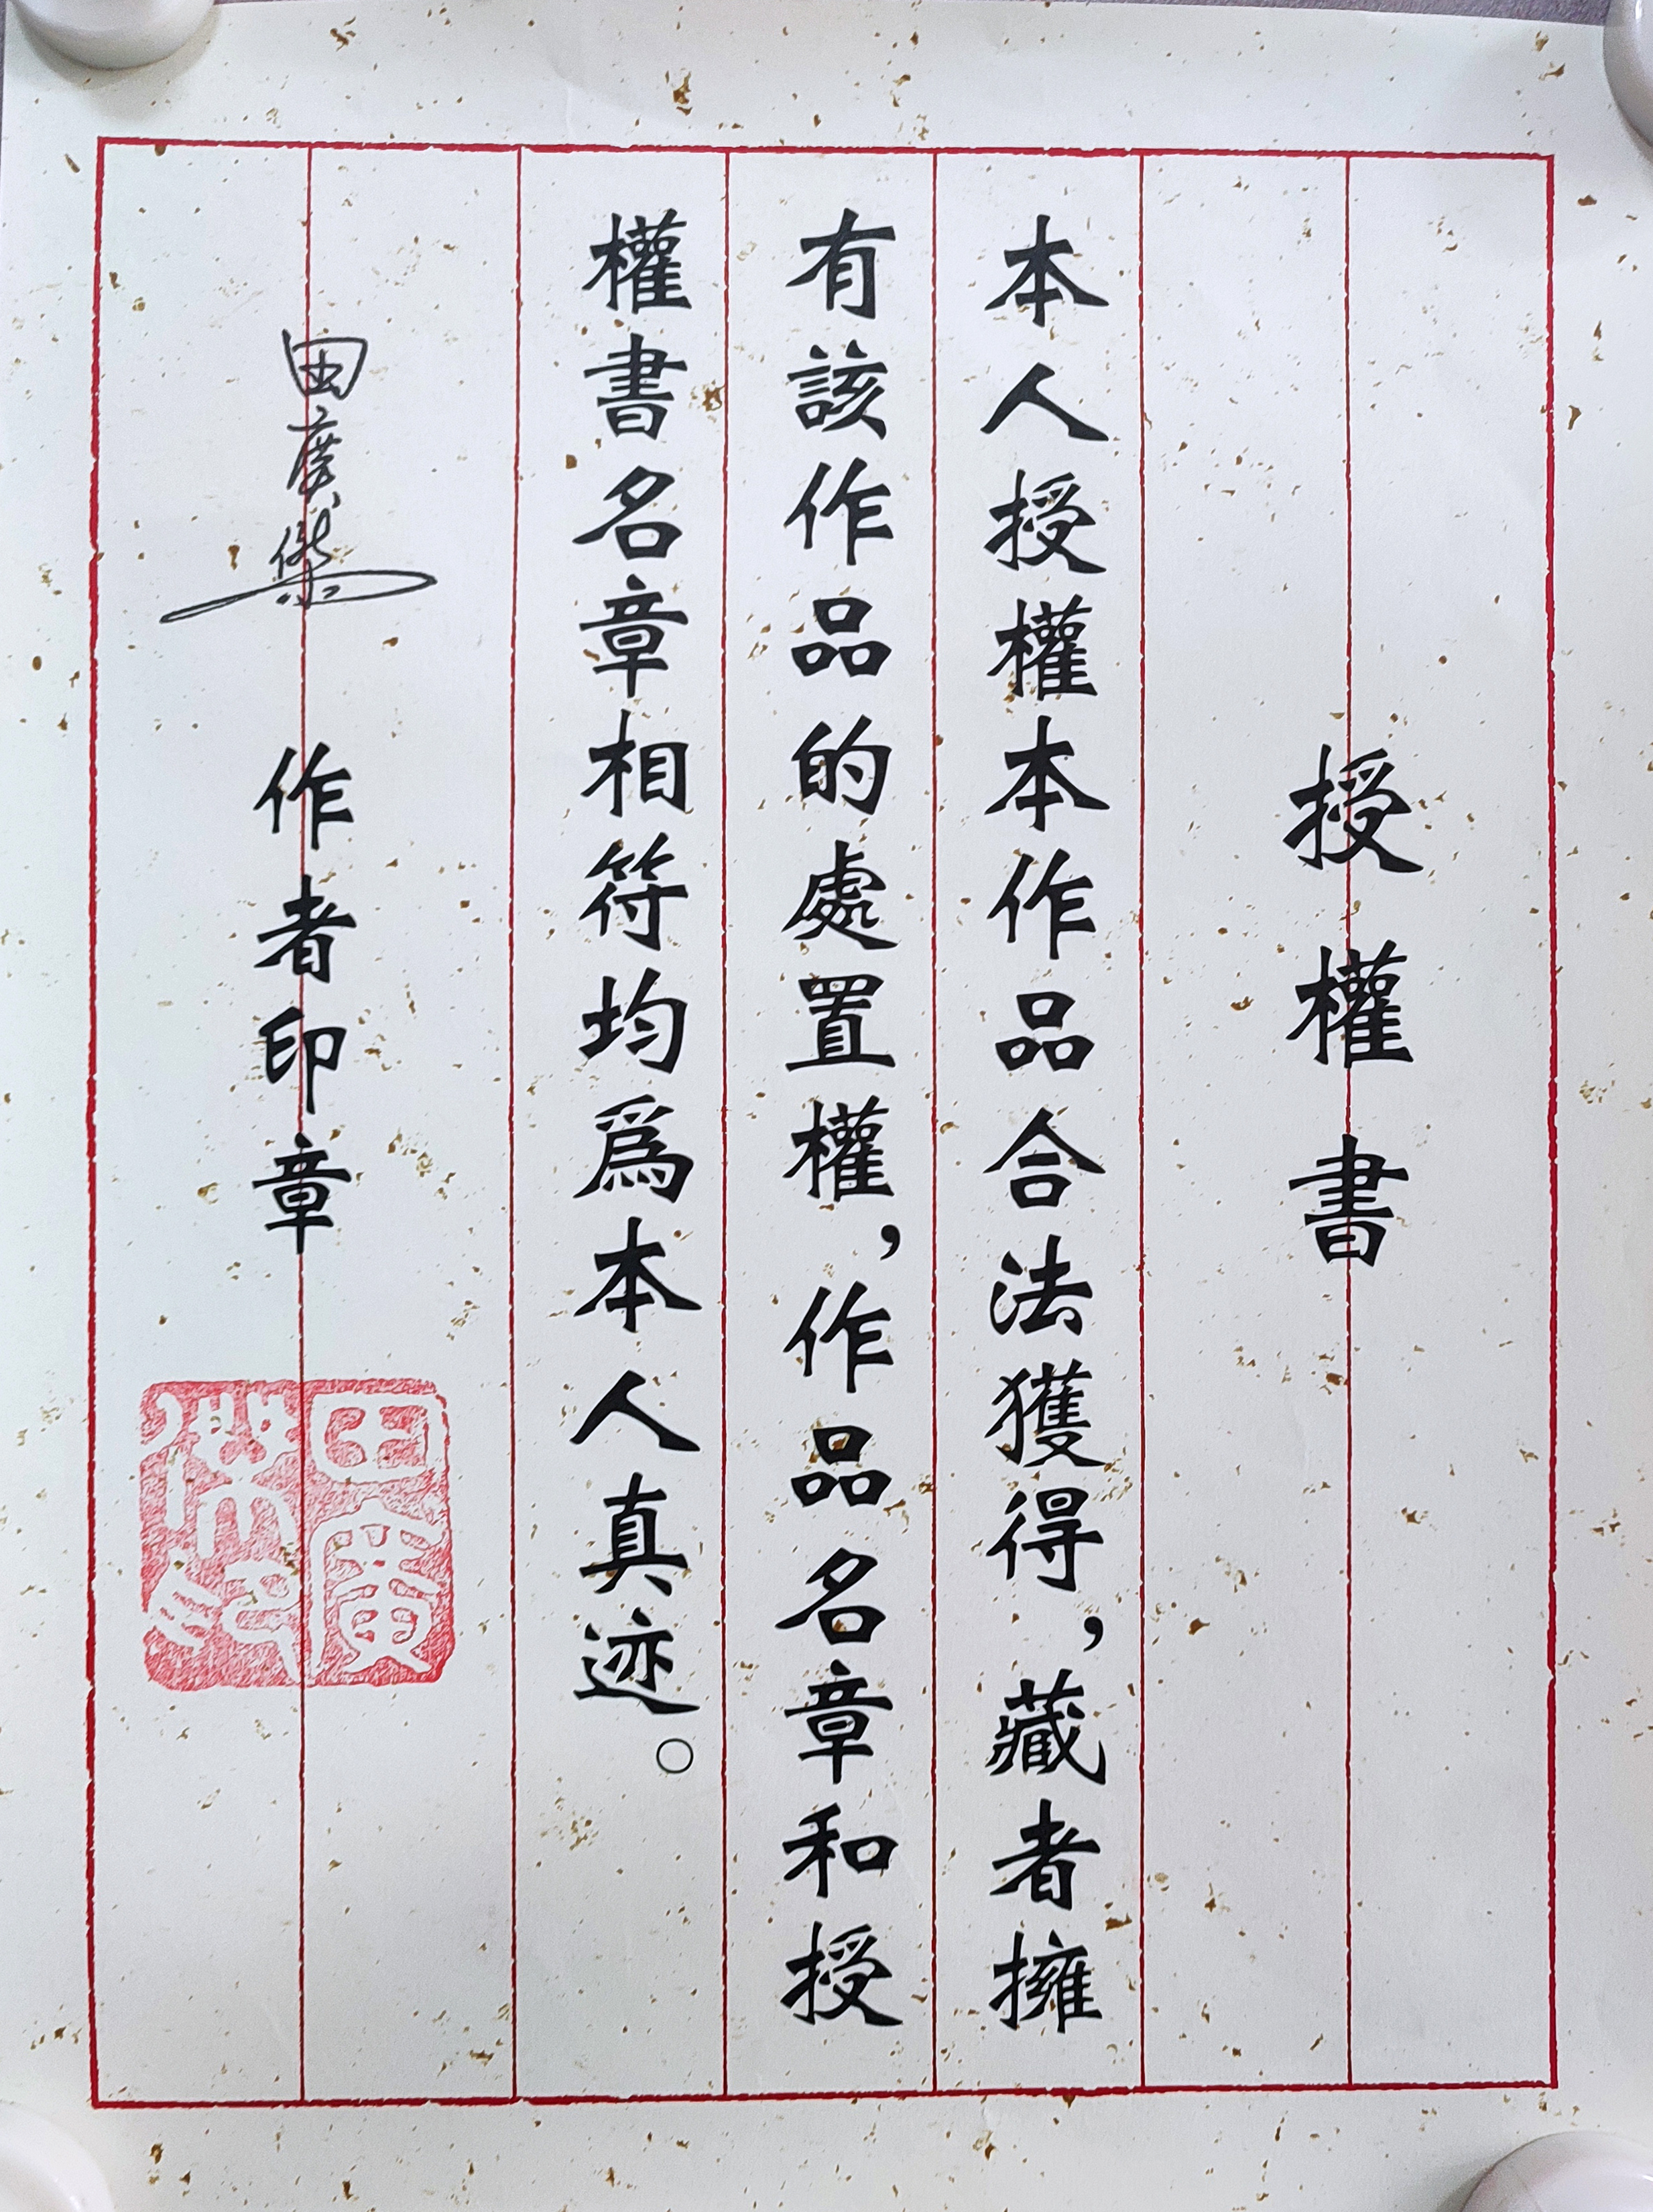 授權書
本人授權本作品合法獲得，藏者擁
有該作品的處置權，作品名章和授
權書名章相符均爲本人真迹。
田廣傑 作者印章
田廣傑